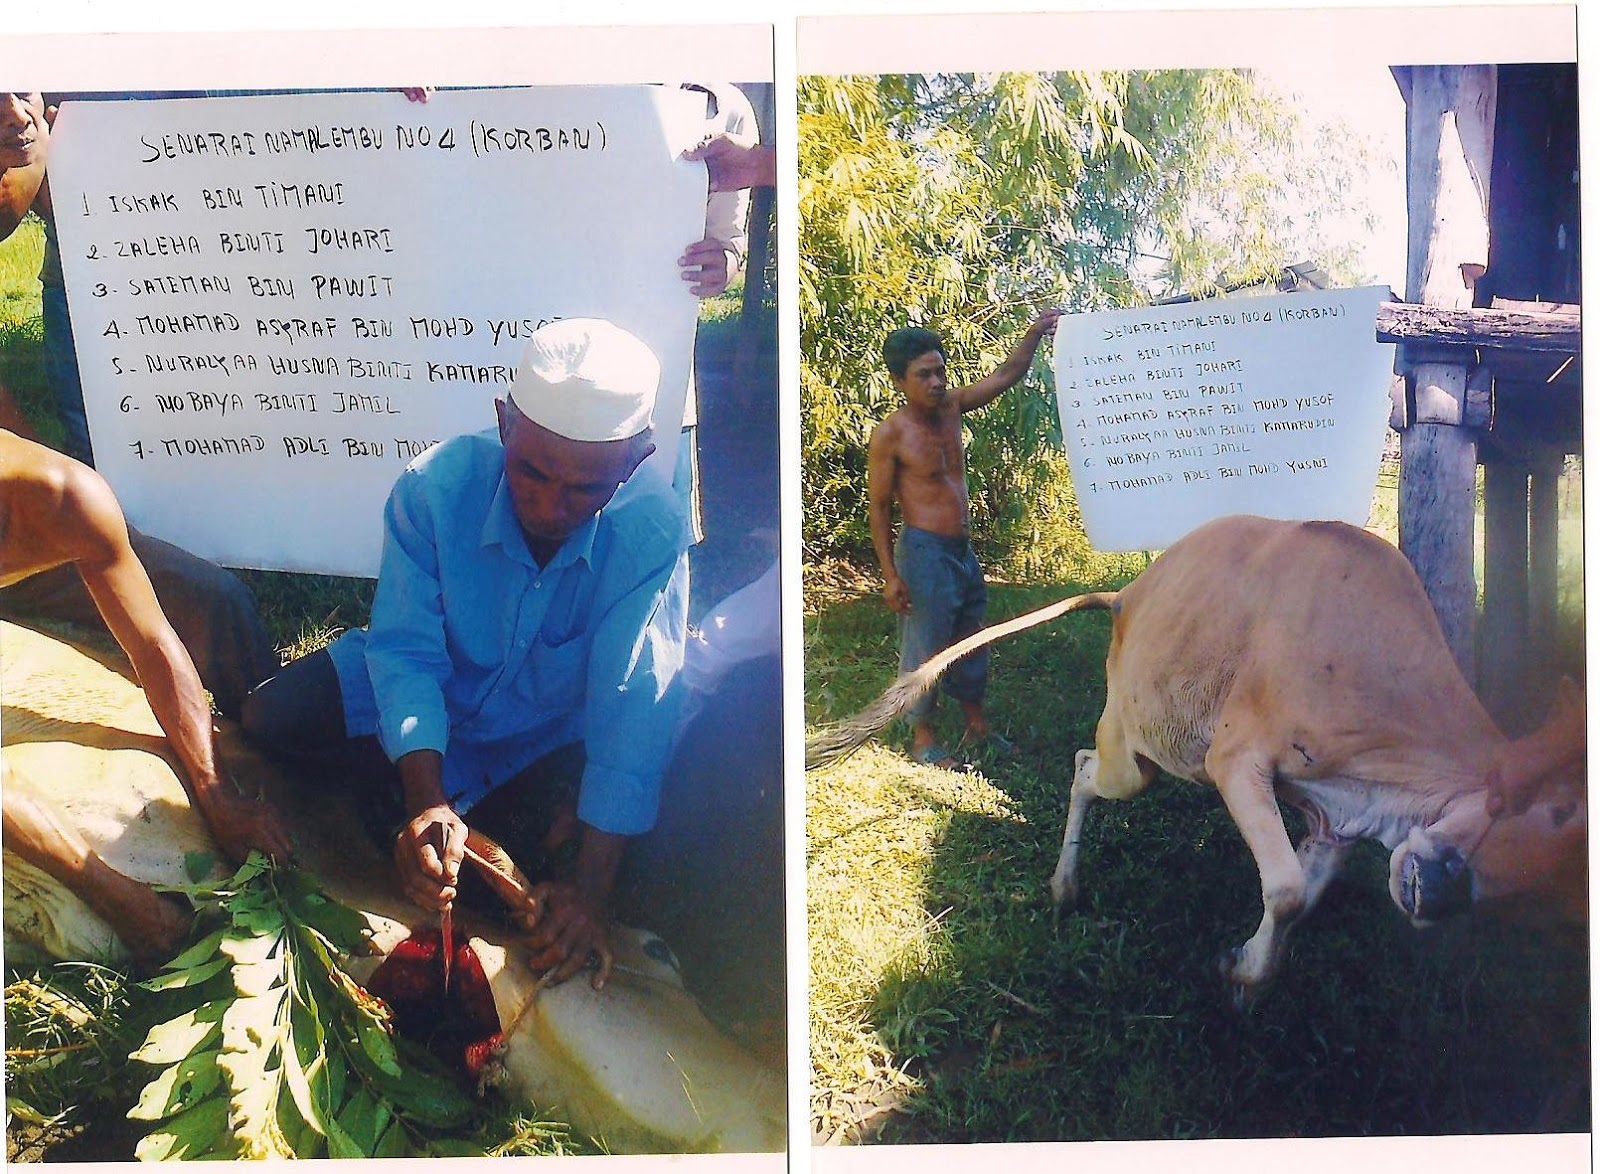 SENARAI NAMA LEMBU NO 4 (KORBAN)
1. ISKAK BIN TIMANI
2. ZALEHA BINTI JOHARI
3. SATEMAN BIN PAWIT
4. MOHAMAD ASYRAF BIN MOHD YUSOF
5. NURALYAA HUSNA BINTI KAMARU
6. NOBAYA BINTI JAMIL
7. MOHAMAD ADLI BIN MOH
SENARAI NAMA LEMBU NO 4 (KORBAN)
1. ISKAK BIN TIMANI
2. ZALEHA BINTI JOHARI
3. SATEMAN BIN PAWIT
4. MOHAMAD ASYRAF BIN MOHD YUSOF
5. NURALYAA HUSNA BINTI KAMARUDIN
6. NOBAYA BINTI JAMIL
7. MOHAMAD ADLI BIN MOHD YUSNI